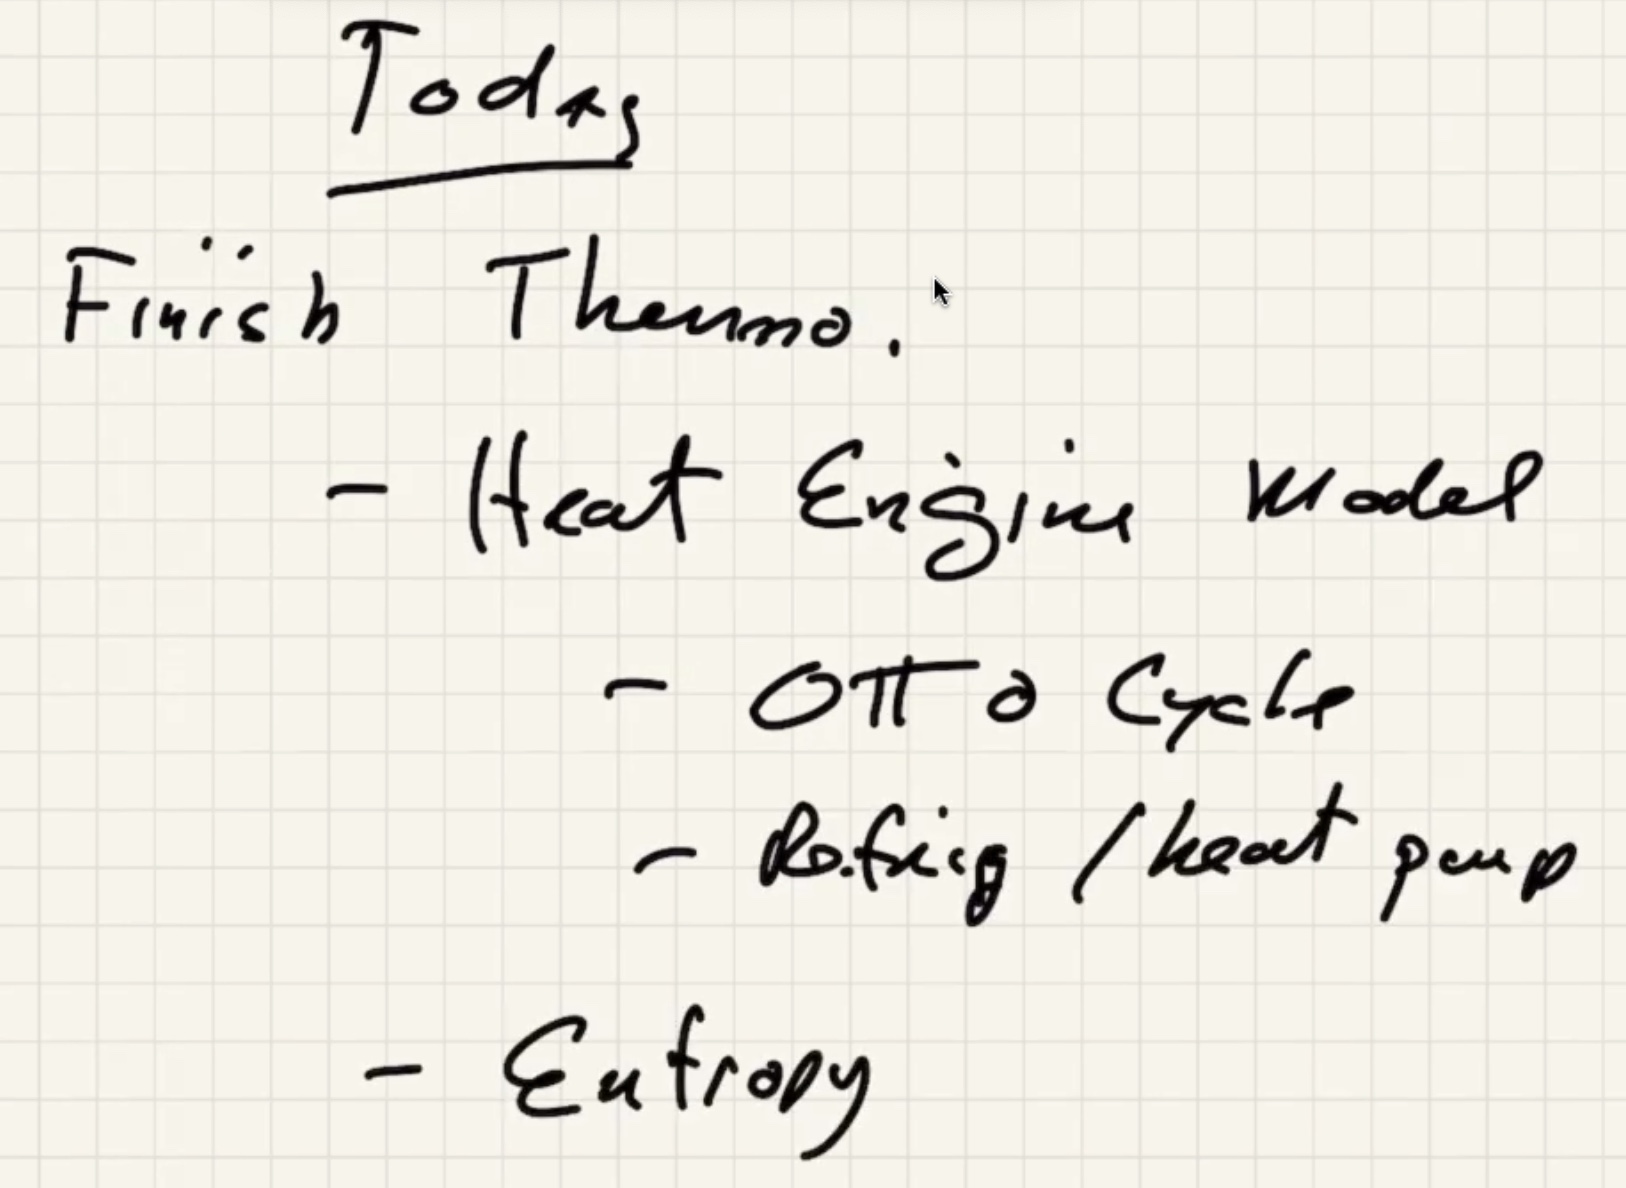 Today
Finish Thermo.
- Heat Engine Model
- OTTO Cycle
- Refrig / heat pump
- Entropy